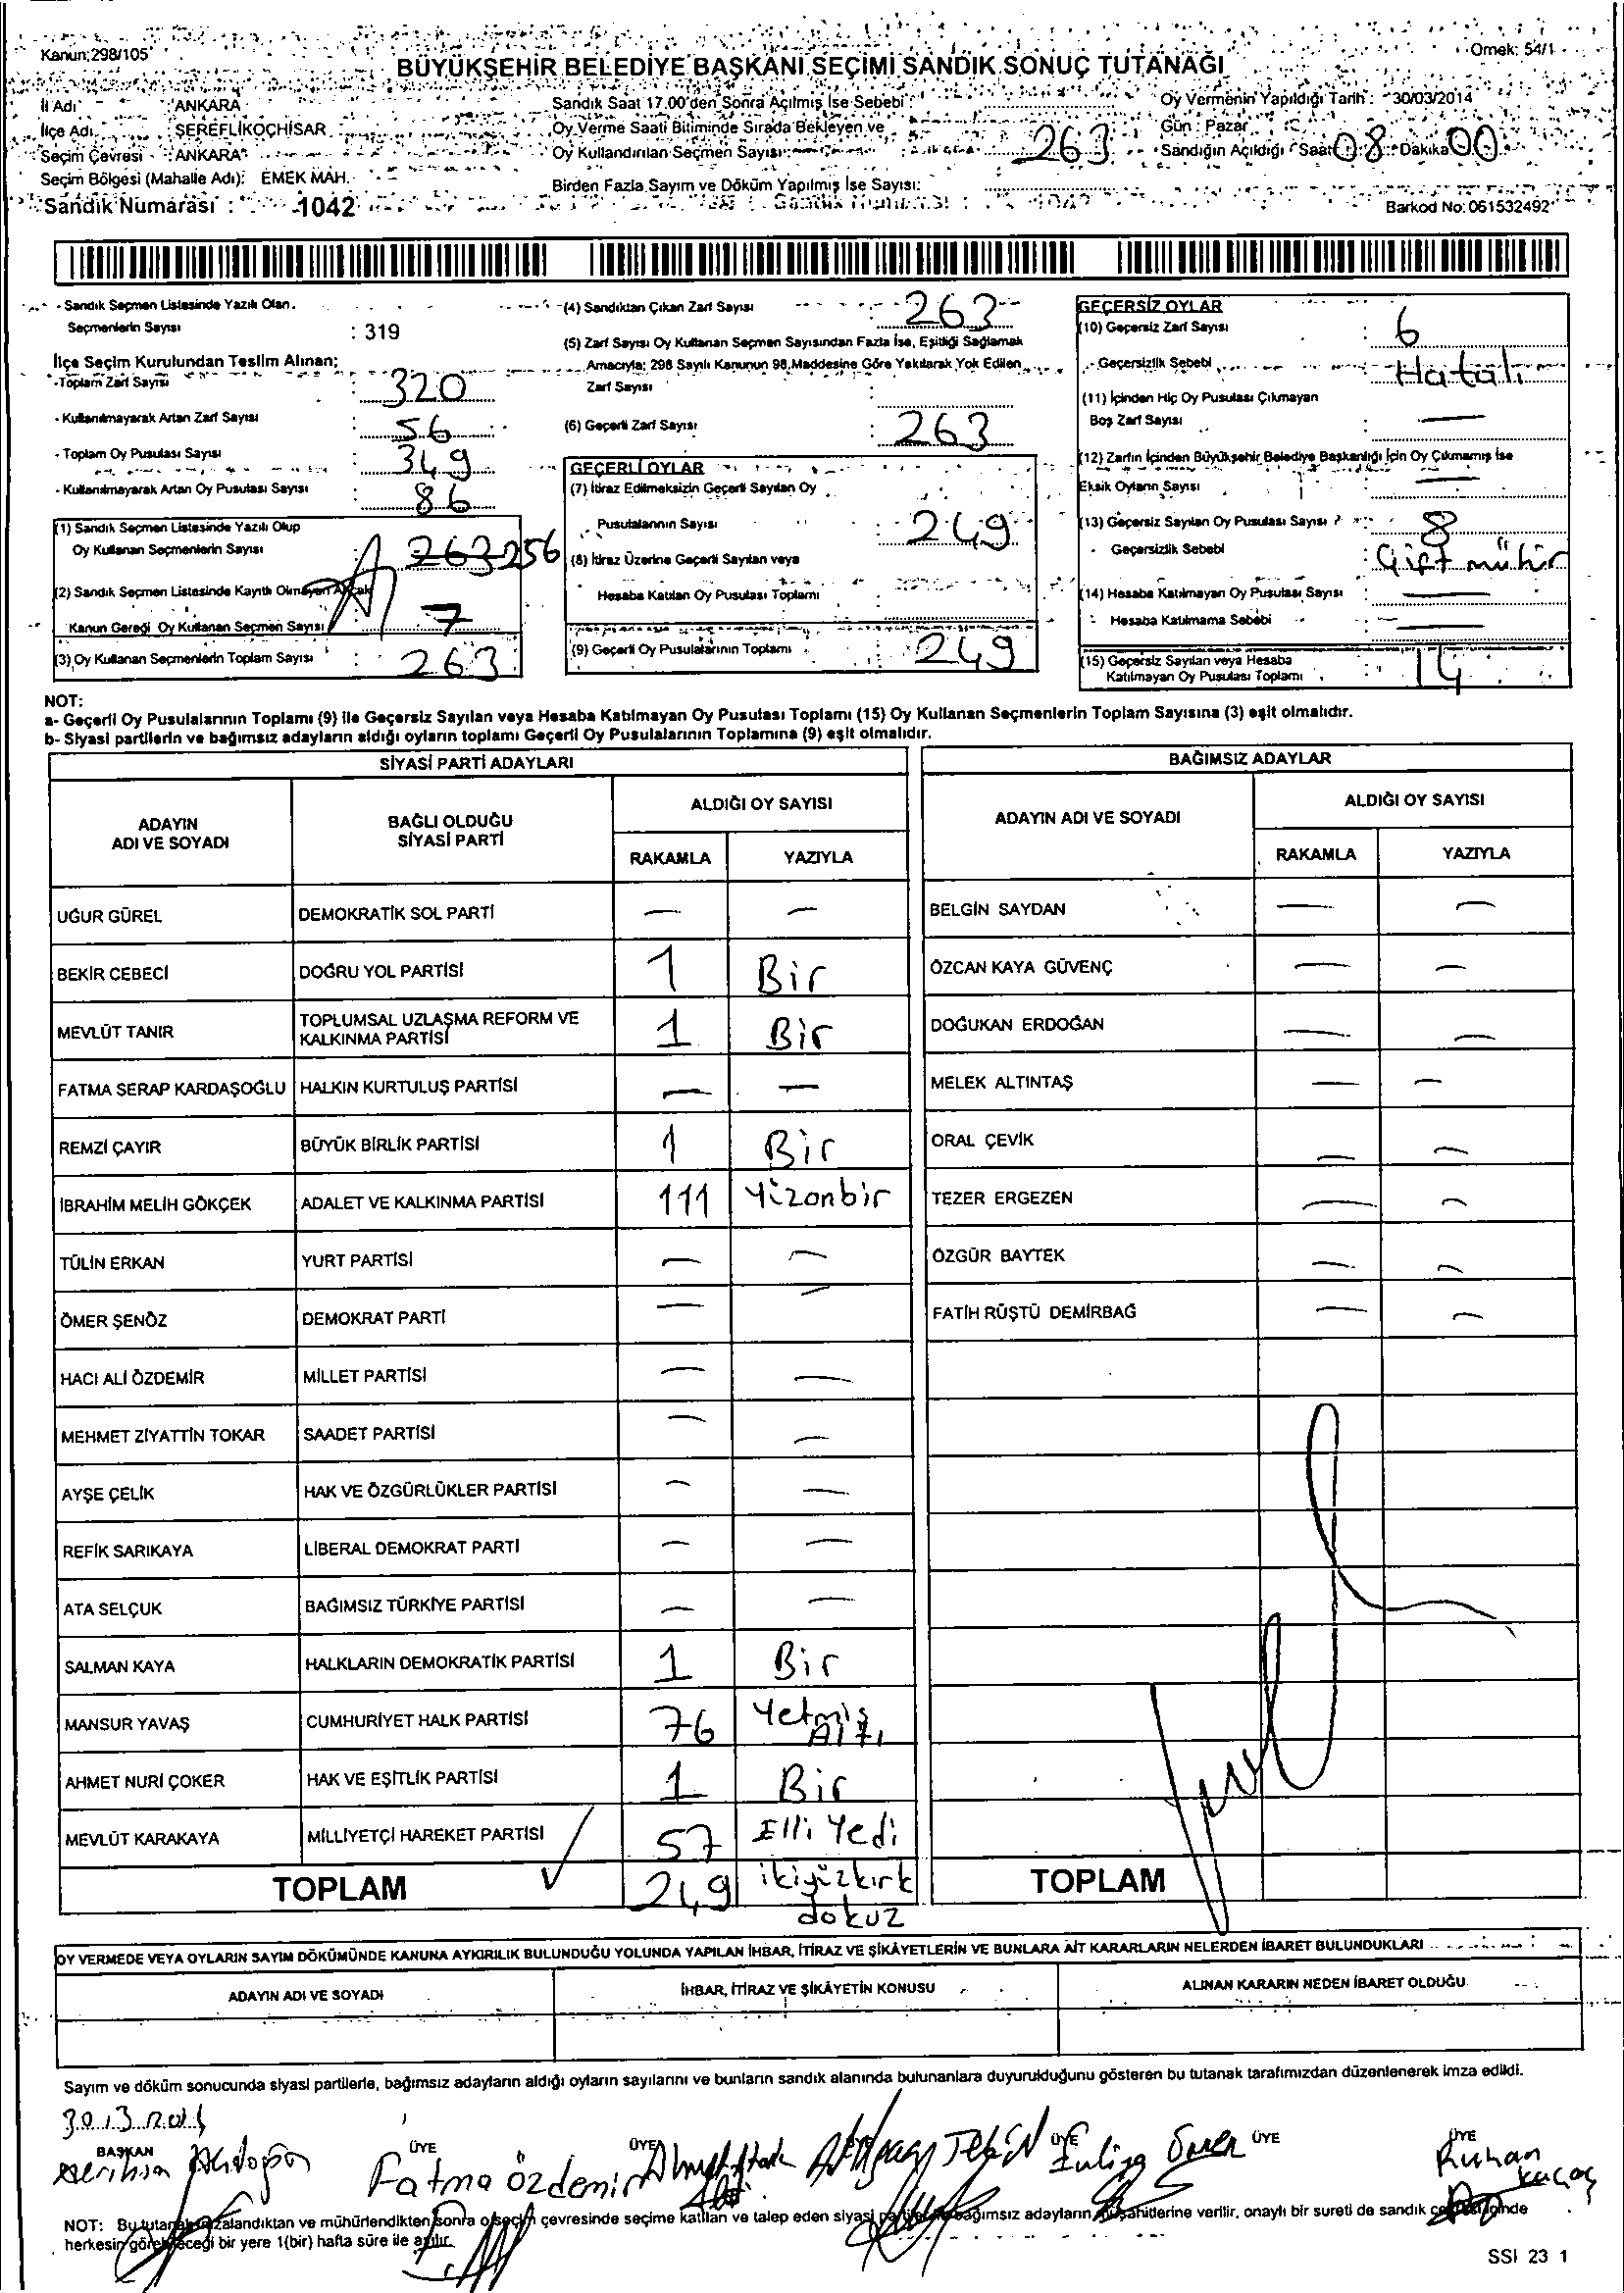 Kanun:298/105
Örnek: 54/1
BÜYÜKŞEHİR BELEDİYE BAŞKANI SEÇİMİ SANDIK SONUÇ TUTANAĞI
İl Adı : ANKARA
İlçe Adı : ŞEREFLİKOÇHİSAR
Seçim Çevresi : ANKARA
Seçim Bölgesi (Mahalle Adı): EMEK MAH.
Sandık Numarası : 1042
Sandık Saat 17.00'den Sonra Açılmış İse Sebebi :
Oy Verme Saati Bitiminde Sırada Bekleyen ve
Oy Kullandırılan Seçmen Sayısı: 263
Birden Fazla Sayım ve Döküm Yapılmış İse Sayısı:
Oy Vermenin Yapıldığı Tarih : 30/03/2014
Gün : Pazar
Sandığın Açıldığı Saat 08 Dakika 00
Barkod No: 061532492
- Sandık Seçmen Listesinde Yazılı Olan
Seçmenlerin Sayısı : 319
İlçe Seçim Kurulundan Teslim Alınan;
- Toplam Zarf Sayısı : 320
- Kullanılmayarak Artan Zarf Sayısı : 56
- Toplam Oy Pusulası Sayısı : 349
- Kullanılmayarak Artan Oy Pusulası Sayısı : 86
(1) Sandık Seçmen Listesinde Yazılı Olup
Oy Kullanan Seçmenlerin Sayısı : 263 256
(2) Sandık Seçmen Listesinde Kayıtlı Olmayan Ancak
Kanun Gereği Oy Kullanan Seçmen Sayısı 7
(3) Oy Kullanan Seçmenlerin Toplam Sayısı : 263
(4) Sandıktan Çıkan Zarf Sayısı : 263
(5) Zarf Sayısı Oy Kullanan Seçmen Sayısından Fazla İse, Eşitliği Sağlamak
Amacıyla; 298 Sayılı Kanunun 98.Maddesine Göre Yakılarak Yok Edilen
Zarf Sayısı :
(6) Geçerli Zarf Sayısı : 263
GEÇERLİ OYLAR
(7) İtiraz Edilmeksizin Geçerli Sayılan Oy
Pusulalarının Sayısı : 249
(8) İtiraz Üzerine Geçerli Sayılan veya
Hesaba Katılan Oy Pusulası Toplamı :
(9) Geçerli Oy Pusulalarının Toplamı : 249
GEÇERSİZ OYLAR
(10) Geçersiz Zarf Sayısı : 6
- Geçersizlik Sebebi : Hatalı
(11) İçinden Hiç Oy Pusulası Çıkmayan
Boş Zarf Sayısı : —
(12) Zarfın İçinden Büyükşehir Belediye Başkanlığı İçin Oy Çıkmamış İse
Eksik Oyların Sayısı : —
(13) Geçersiz Sayılan Oy Pusulası Sayısı : 8
- Geçersizlik Sebebi : Çift mühür
(14) Hesaba Katılmayan Oy Pusulası Sayısı : —
- Hesaba Katılmama Sebebi : —
(15) Geçersiz Sayılan veya Hesaba
Katılmayan Oy Pusulası Toplamı : 14
NOT:
a- Geçerli Oy Pusulalarının Toplamı (9) ile Geçersiz Sayılan veya Hesaba Katılmayan Oy Pusulası Toplamı (15) Oy Kullanan Seçmenlerin Toplam Sayısına (3) eşit olmalıdır.
b- Siyasi partilerin ve bağımsız adayların aldığı oyların toplamı Geçerli Oy Pusulalarının Toplamına (9) eşit olmalıdır.
SİYASİ PARTİ ADAYLARI
ADAYIN ADI VE SOYADI BAĞLI OLDUĞU SİYASİ PARTİ ALDIĞI OY SAYISI
RAKAMLA YAZIYLA
UĞUR GÜREL DEMOKRATİK SOL PARTİ — —
BEKİR CEBECİ DOĞRU YOL PARTİSİ 1 Bir
MEVLÜT TANIR TOPLUMSAL UZLAŞMA REFORM VE KALKINMA PARTİSİ 1 Bir
FATMA SERAP KARDAŞOĞLU HALKIN KURTULUŞ PARTİSİ — —
REMZİ ÇAYIR BÜYÜK BİRLİK PARTİSİ 1 Bir
İBRAHİM MELİH GÖKÇEK ADALET VE KALKINMA PARTİSİ 111 Yizonbir
TÜLİN ERKAN YURT PARTİSİ — —
ÖMER ŞENÖZ DEMOKRAT PARTİ — —
HACI ALİ ÖZDEMİR MİLLET PARTİSİ — —
MEHMET ZİYATTİN TOKAR SAADET PARTİSİ — —
AYŞE ÇELİK HAK VE ÖZGÜRLÜKLER PARTİSİ — —
REFİK SARIKAYA LİBERAL DEMOKRAT PARTİ — —
ATA SELÇUK BAĞIMSIZ TÜRKİYE PARTİSİ — —
SALMAN KAYA HALKLARIN DEMOKRATİK PARTİSİ 1 Bir
MANSUR YAVAŞ CUMHURİYET HALK PARTİSİ 76 Yetmiş Altı
AHMET NURİ ÇOKER HAK VE EŞİTLİK PARTİSİ 1 Bir
MEVLÜT KARAKAYA MİLLİYETÇİ HAREKET PARTİSİ 57 Elli Yedi
TOPLAM 249 ikiyüzkırk dokuz
BAĞIMSIZ ADAYLAR
ADAYIN ADI VE SOYADI ALDIĞI OY SAYISI
RAKAMLA YAZIYLA
BELGİN SAYDAN — —
ÖZCAN KAYA GÜVENÇ — —
DOĞUKAN ERDOĞAN — —
MELEK ALTINTAŞ — —
ORAL ÇEVİK — —
TEZER ERGEZEN — —
ÖZGÜR BAYTEK — —
FATİH RÜŞTÜ DEMİRBAĞ — —
TOPLAM
OY VERMEDE VEYA OYLARIN SAYIM DÖKÜMÜNDE KANUNA AYKIRILIK BULUNDUĞU YOLUNDA YAPILAN İHBAR, İTİRAZ VE ŞİKÂYETLERİN VE BUNLARA AİT KARARLARIN NELERDEN İBARET BULUNDUKLARI
ADAYIN ADI VE SOYADI İHBAR, İTİRAZ VE ŞİKÂYETİN KONUSU ALINAN KARARIN NEDEN İBARET OLDUĞU
Sayım ve döküm sonucunda siyasi partilerle, bağımsız adayların aldığı oyların sayılarını ve bunların sandık alanında bulunanlara duyurulduğunu gösteren bu tutanak tarafımızdan düzenlenerek imza edildi.
30.3.2014
BAŞKAN ÜYE ÜYE ÜYE ÜYE ÜYE
Fatma Özdemir
Ruhan
NOT: Bu tutanak imzalandıktan ve mühürlendikten sonra o seçim çevresinde seçime katılan ve talep eden siyasi parti ve bağımsız adayların müşahitlerine verilir, onaylı bir sureti de sandık çevresi içinde
herkesin görebileceği bir yere 1(bir) hafta süre ile asılır.
SSI 23 1